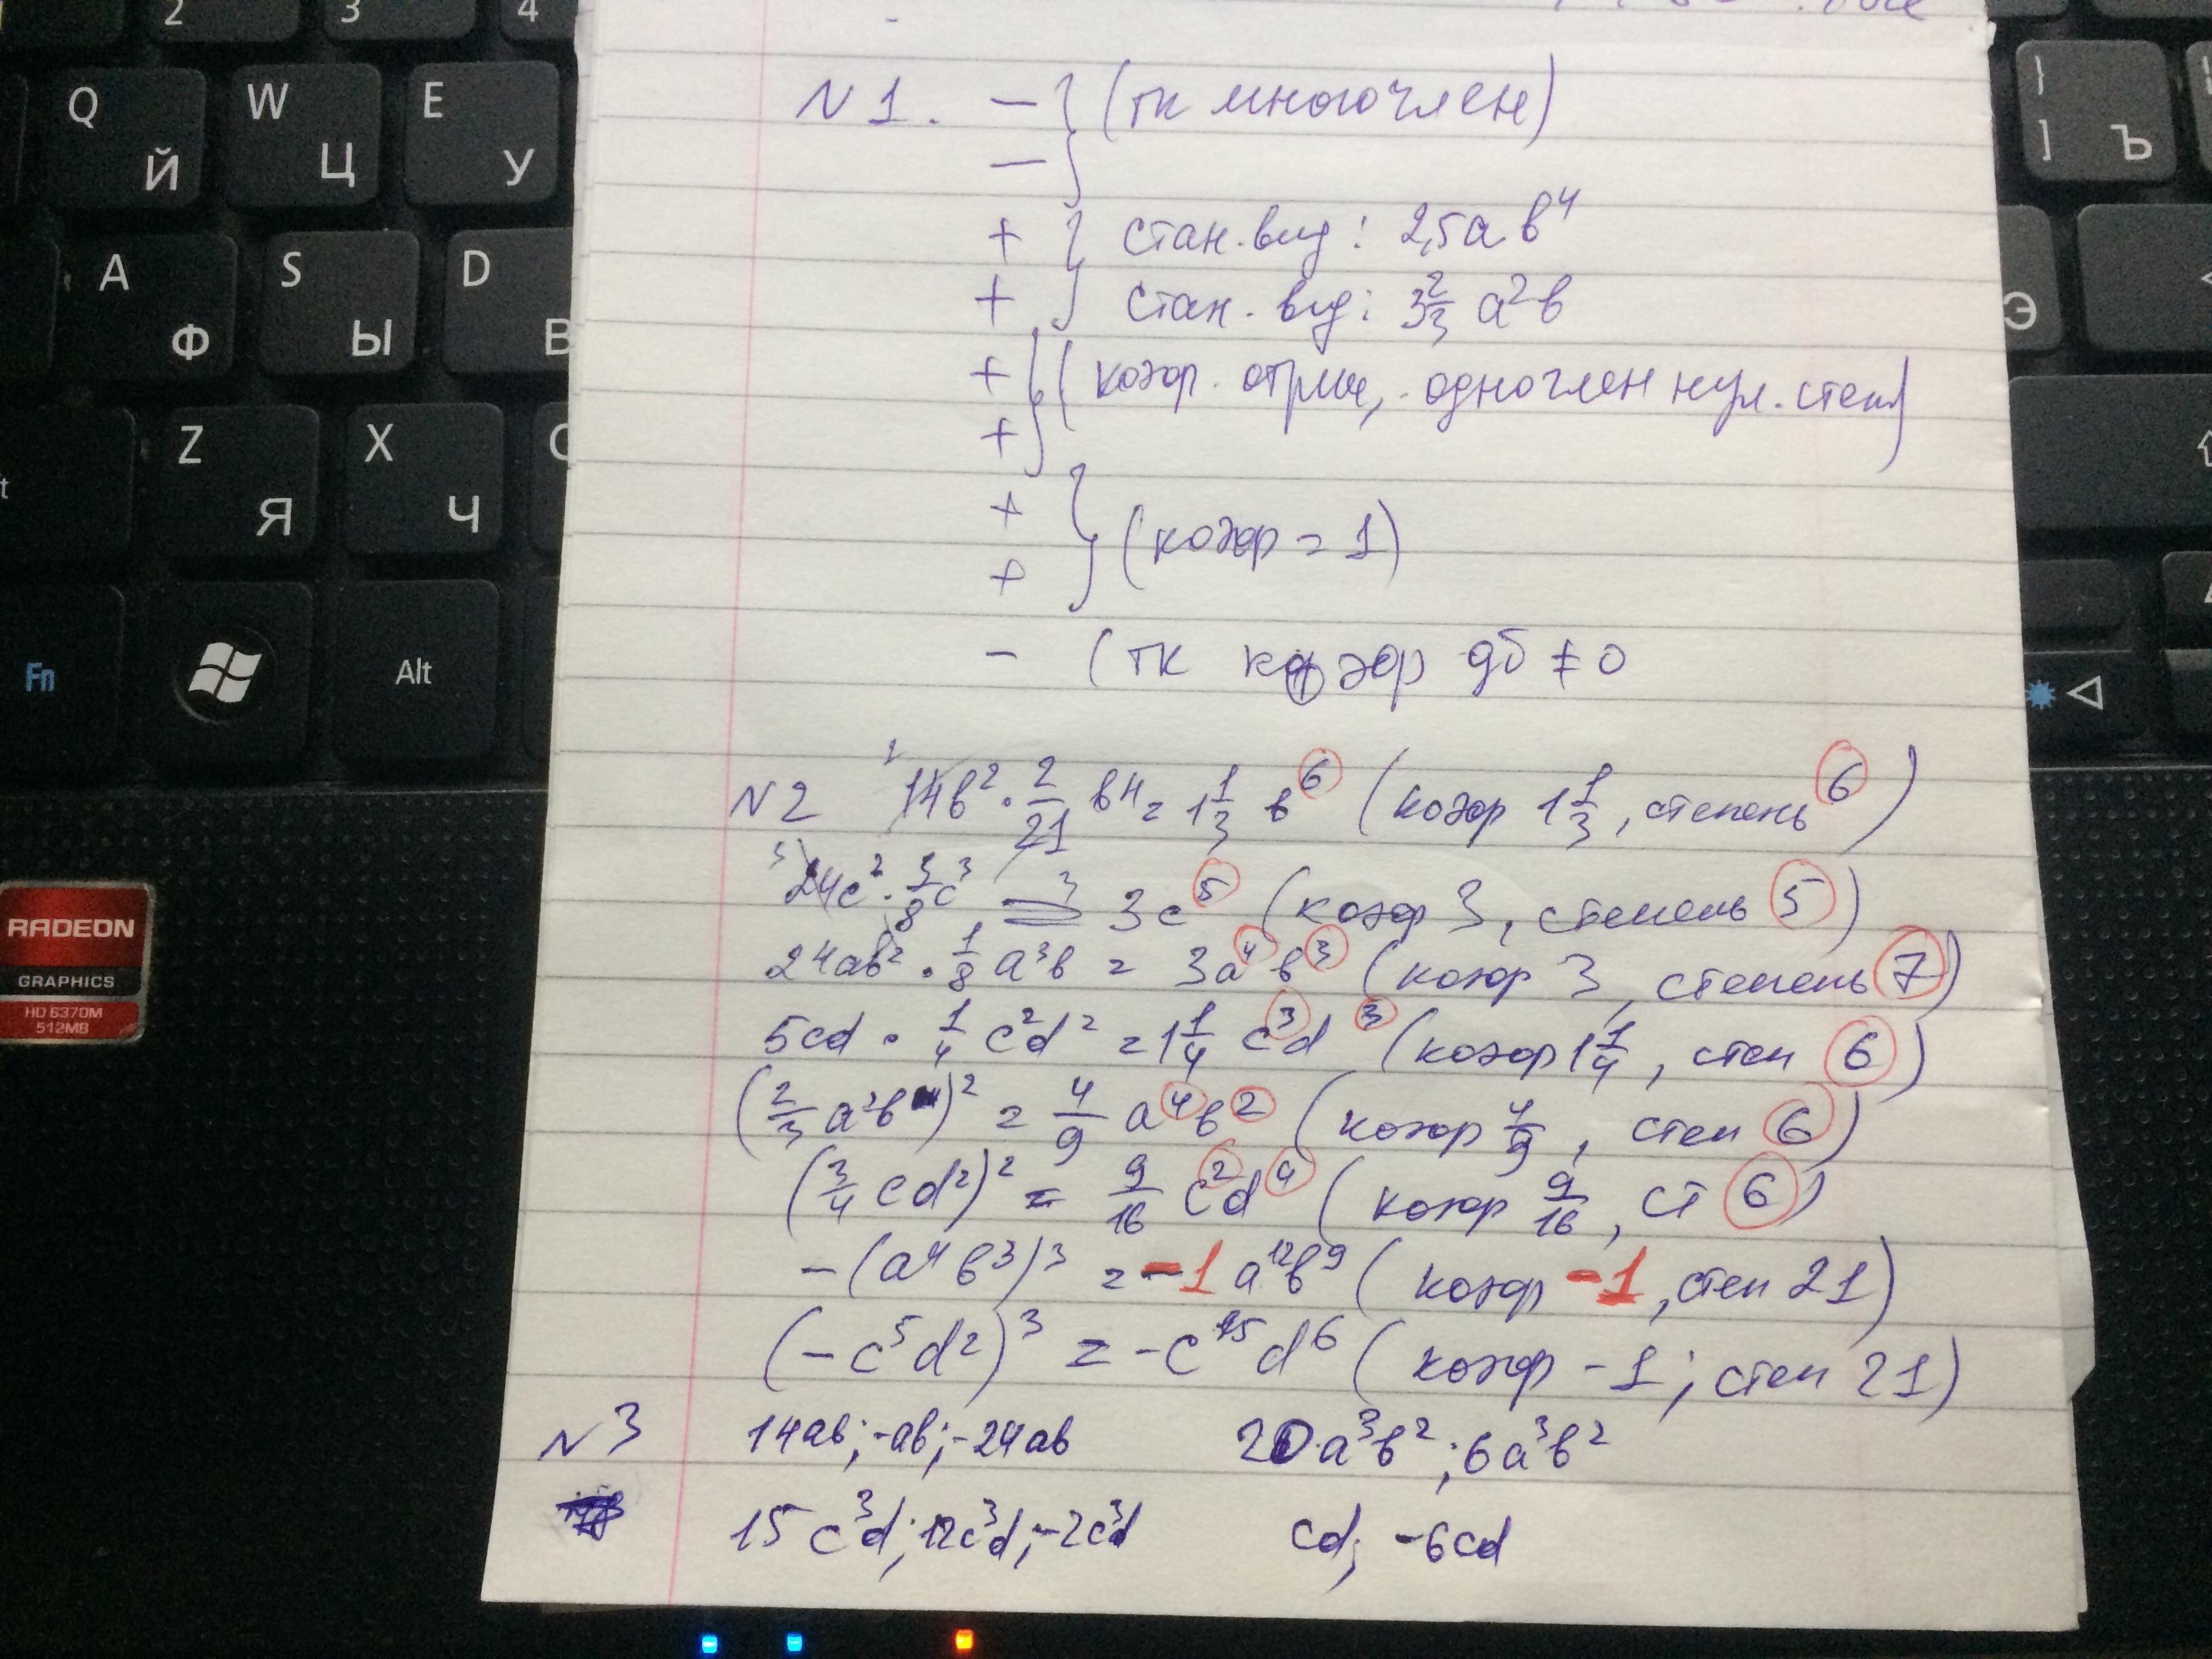 2 3 4
Q Й W Ц E У
} ] Ъ
A Ф S Ы D В
Э
Z Я X Ч C
Fn Alt
RADEON
GRAPHICS
HD 6370M
512MB
N 1. – } (тк многочлен)
– }
+ } стан. вид: 2,5ab⁴
+ } стан. вид: 3 2/3 a²b
+ } (коэф. отриц, одночлен нул. степ)
+ }
+ } (коэф = 1)
+ }
– (тк коэф дб ≠ 0
N2 14b² · 2/21 b⁴ = 1 1/3 b⁶ (коэф 1 1/3, степень 6)
24c² · 1/8 c³ = 3c⁵ (коэф 3, степень 5)
24ab² · 1/8 a³b = 3a⁴b³ (коэф 3, степень 7)
5cd · 1/4 c²d² = 1 1/4 c³d³ (коэф 1 1/4, степ 6)
(2/3 a²b)² = 4/9 a⁴b² (коэф 4/9, степ 6)
(3/4 cd²)² = 9/16 c²d⁴ (коэф 9/16, ст 6)
–(a⁴b³)³ = –1a¹²b⁹ (коэф –1, степ 21)
(–c⁵d²)³ = –c¹⁵d⁶ (коэф –1; степ 21)
N3 14ab; -ab; -24ab 20a³b²; 6a³b²
15c³d; 12c³d; -2c³d cd; -6cd